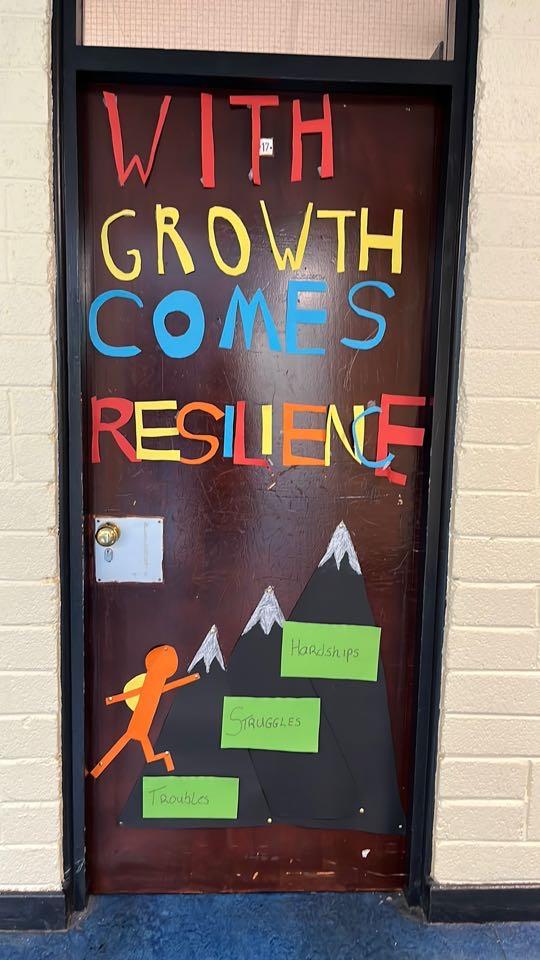 WITH
17
GROWTH
COMES
RESILIENCE
Hardships
STRUGGLES
Troubles